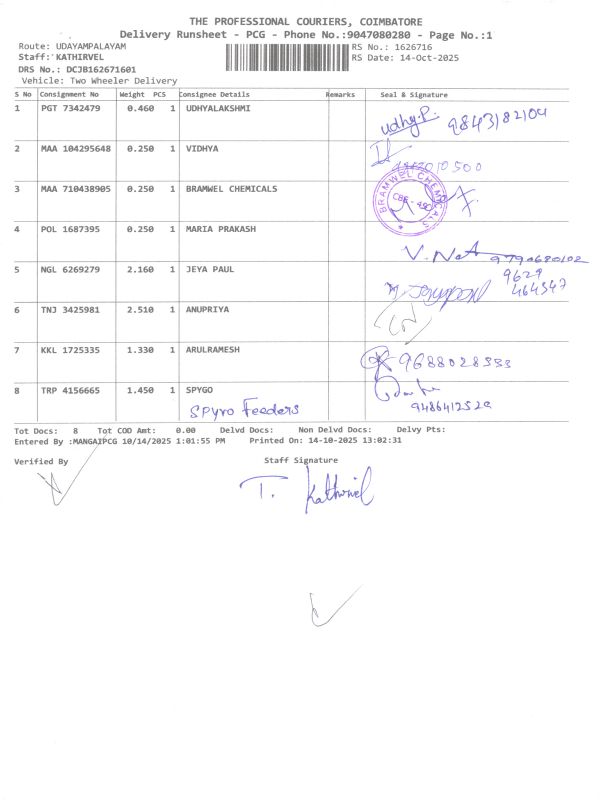 THE PROFESSIONAL COURIERS, COIMBATORE
Delivery Runsheet - PCG - Phone No.:9047080280 - Page No.:1
Route: UDAYAMPALAYAM RS No.: 1626716
Staff: KATHIRVEL RS Date: 14-Oct-2025
DRS No.: DCJB162671601
Vehicle: Two Wheeler Delivery
S No Consignment No Weight PCS Consignee Details Remarks Seal & Signature
1 PGT 7342479 0.460 1 UDHYALAKSHMI udhy.P. 9843182104
2 MAA 104295648 0.250 1 VIDHYA
3 MAA 710438905 0.250 1 BRAMWEL CHEMICALS BRAMWEL CHEMICALS
4 POL 1687395 0.250 1 MARIA PRAKASH
V. 9790680102
5 NGL 6269279 2.160 1 JEYA PAUL 9629
464547
6 TNJ 3425981 2.510 1 ANUPRIYA
7 KKL 1725335 1.330 1 ARULRAMESH 9688028333
8 TRP 4156665 1.450 1 SPYGO
Spyro Feeders
Tot Docs: 8 Tot COD Amt: 0.00 Delvd Docs: Non Delvd Docs: Delvy Pts:
Entered By :MANGAIPCG 10/14/2025 1:01:55 PM Printed On: 14-10-2025 13:02:31
Verified By Staff Signature
T. Kathirvel